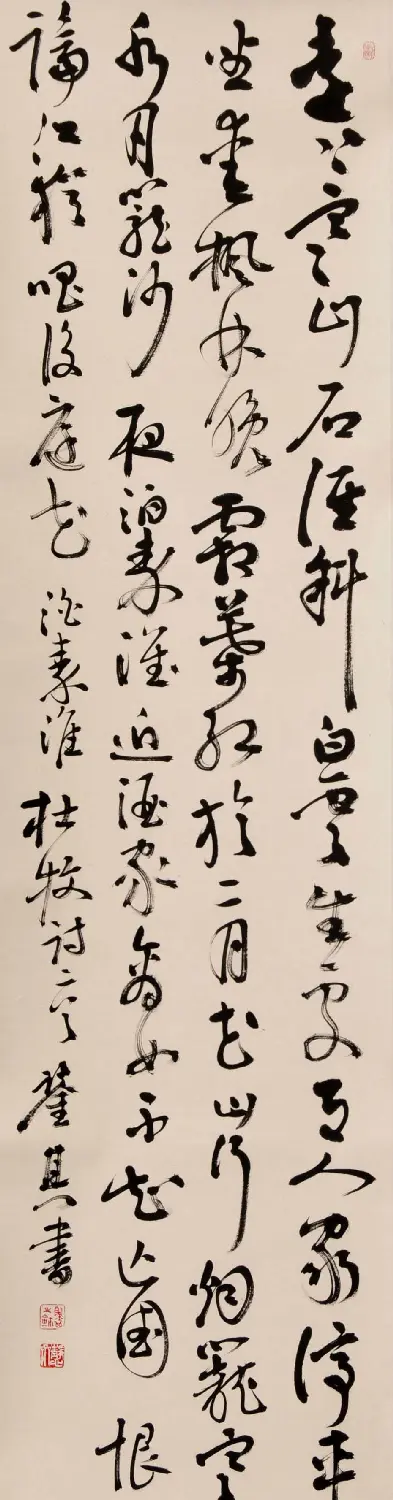 遠上寒山石徑斜白雲生處有人家停車
坐愛楓林晚霜葉紅於二月花山行烟籠寒
水月籠沙夜泊秦淮近酒家商女不知亡國恨
隔江猶唱後庭花泊秦淮杜牧詩二首其書